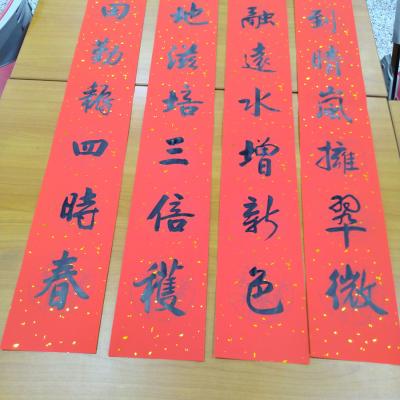 到晴嵐擁翠微
融遠水增新色
地滋培三倍穫
田勤耨四時春